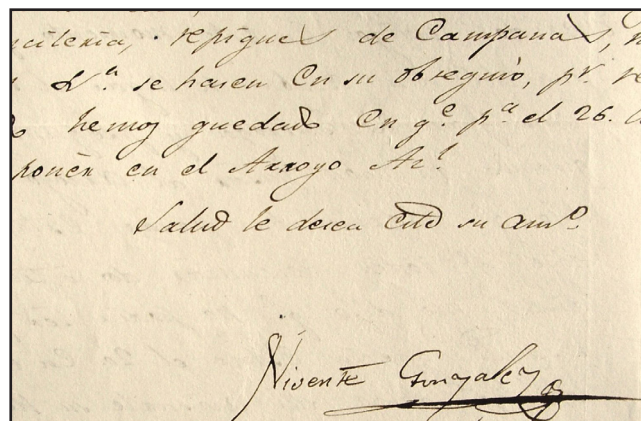 repiques de Campanas,
Va. se hasen En su obsequio, pr.
hemos quedado En qe. pa. el 26.
ponen en el Arroyo Azl.
Salud le desea Este su amo.
Vicente Gonzalez